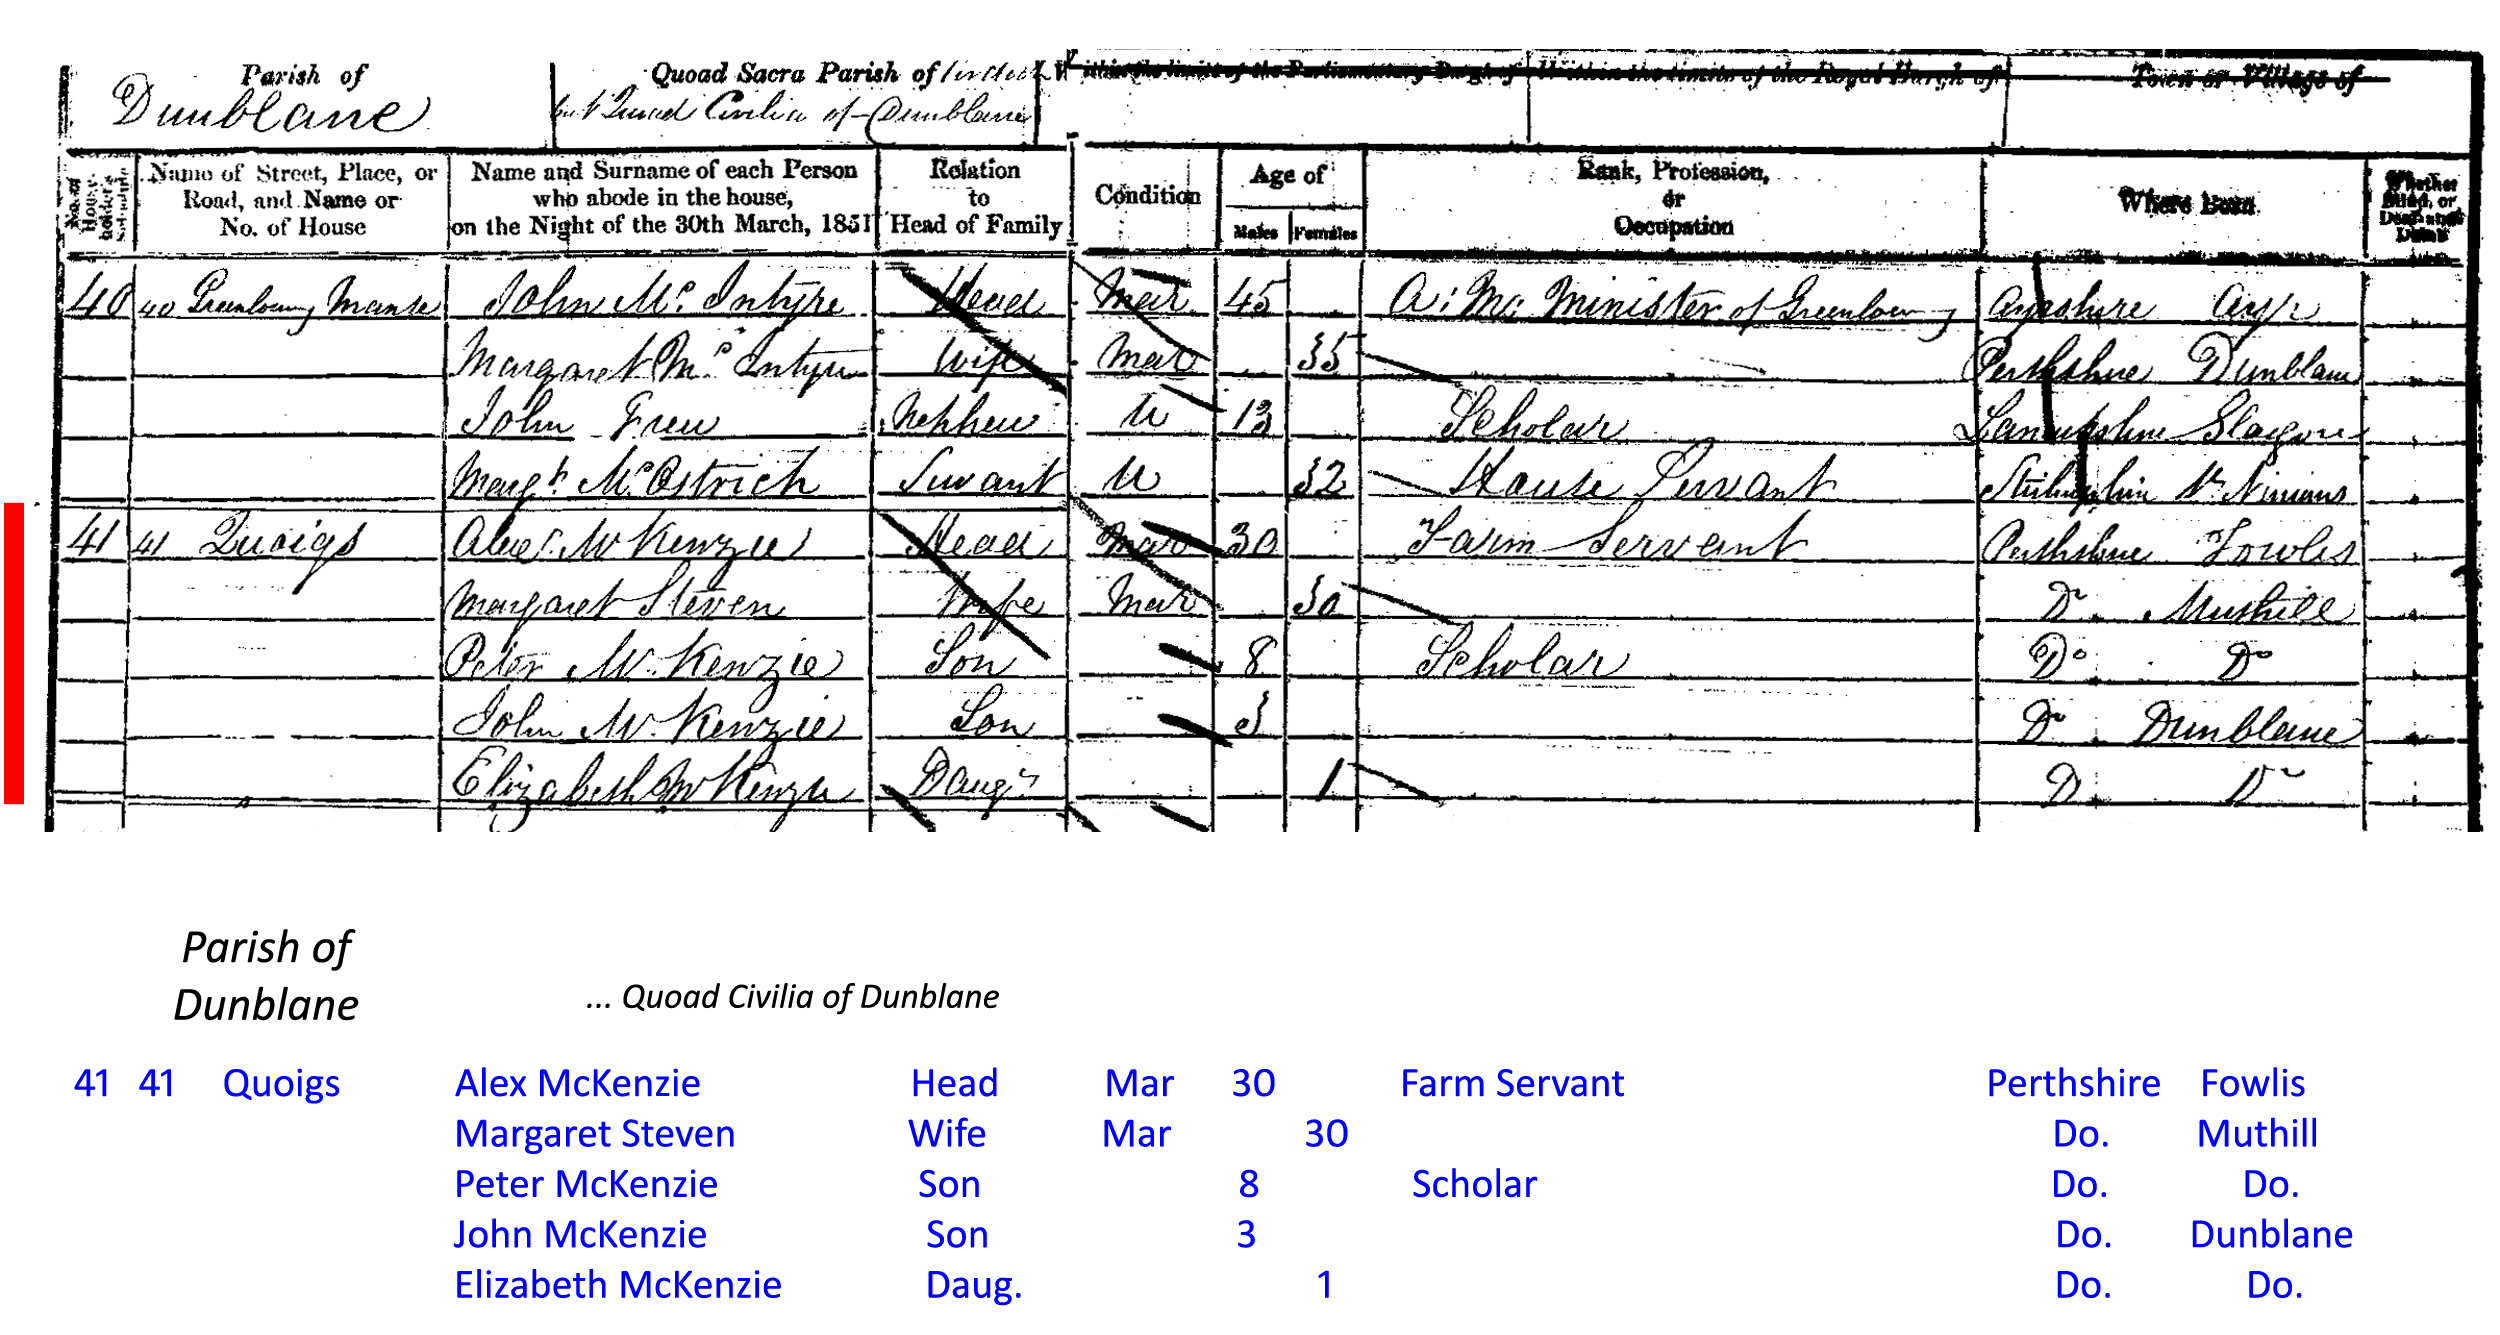 Parish of
Dunblane
Quoad Sacra Parish of
but Quoad Civilia of Dunblane
Within the limits of the Parliamentary Burgh of
Within the limits of the Royal Burgh of
Town or Village of
No. of House-holder's Schedule
Name of Street, Place, or Road, and Name or No. of House
Name and Surname of each Person who abode in the house, on the Night of the 30th March, 1851
Relation to Head of Family
Condition
Age of
Males Females
Rank, Profession, or Occupation
Where Born
Whether Blind, or Deaf and Dumb
40 40 Greenloaning Manse John Mc Intyre Head Mar 45 Minister of Greenloaning Ayrshire Ayr
Margaret Mc Intyre Wife Mar 35 Perthshire Dunblane
John Frew Nephew U 13 Scholar Lanarkshire Glasgow
Margt. McOstrich Servant U 32 House Servant Stirlingshire St Ninians
41 41 Quoigs Alexr. McKenzie Head Mar 30 Farm Servant Perthshire Fowlis
Margaret Steven Wife Mar 30 Do. Muthill
Peter McKenzie Son 8 Scholar Do. Do.
John McKenzie Son 3 Do. Dunblane
Elizabeth McKenzie Daugr 1 Do. Do.
Parish of
Dunblane
... Quoad Civilia of Dunblane
41 41 Quoigs Alex McKenzie Head Mar 30 Farm Servant Perthshire Fowlis
Margaret Steven Wife Mar 30 Do. Muthill
Peter McKenzie Son 8 Scholar Do. Do.
John McKenzie Son 3 Do. Dunblane
Elizabeth McKenzie Daug. 1 Do. Do.